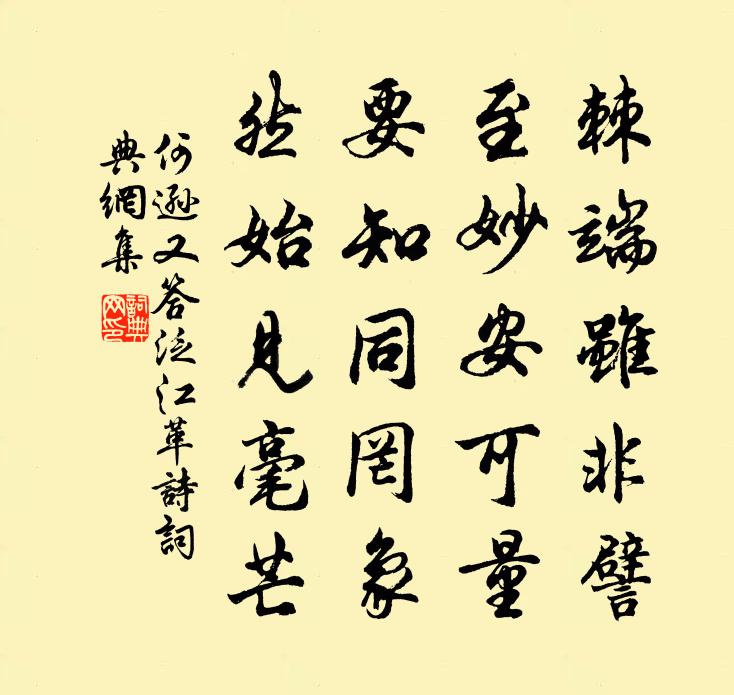 棘端雖非譬
至妙安可量
要知同罔象
然始見毫芒
何遜又答泛江革詩詞
典網集
詞典网印